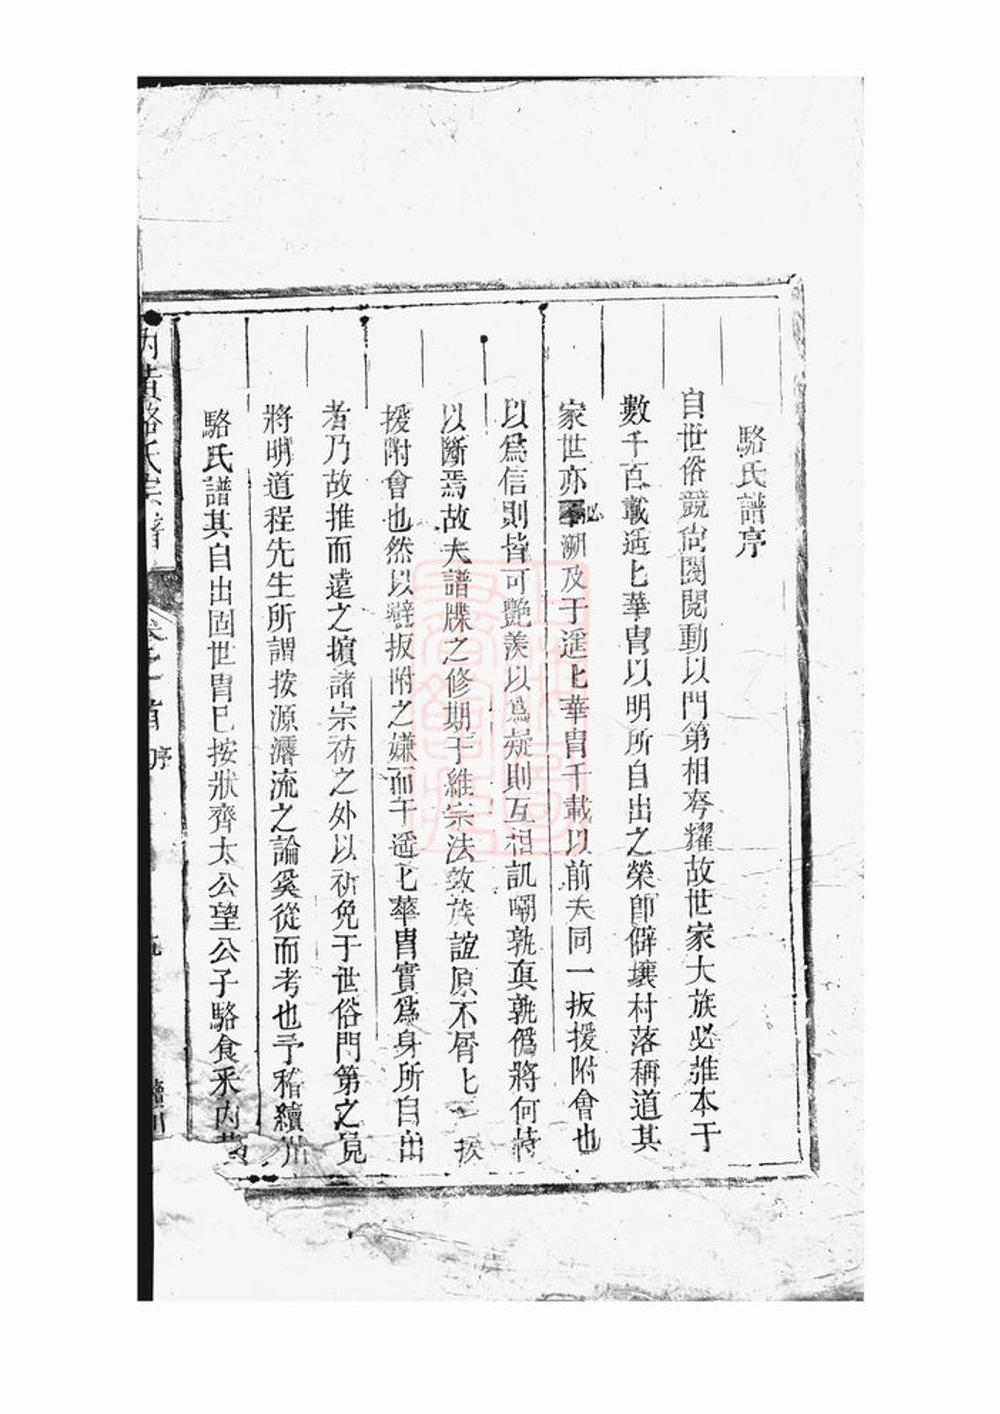 駱氏譜序
自世俗競尙閥閱動以門第相夸耀故世家大族必推本于
數千百載遥匕華胄以明所自出之榮卽僻壤村落稱道其
家世亦必溯及于遥匕華胄千載以前夫同一扳援附會也
以爲信則皆可艷羨以爲疑則互相訊嘲孰真孰僞將何恃
以斷焉故夫譜牒之修期于維宗法敦族誼原不屑匕
援附會也然以避扳附之嫌而于遥匕華胄實爲身所自出
者乃故推而遠之擯諸宗祊之外以祈免于世俗門第之見
將明道程先生所謂按源濬流之論奚從而考也予稽續
駱氏譜其自出固世胄已按狀齊太公望公子駱食采内黄
内黄駱氏宗譜
卷之首
序